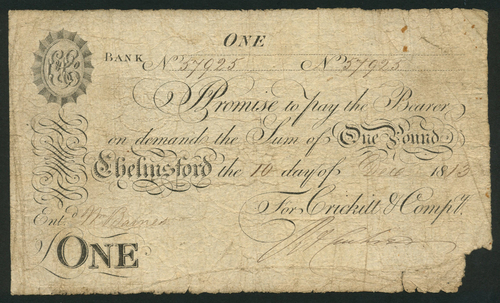 ONE
BANK No 57925 No 57925
I Promise to pay the Bearer
on demand the Sum of One Pound
Chelmsford the 10 day of Dec 1813
For Crickitt & Compy.
Ent.d Wm
ONE